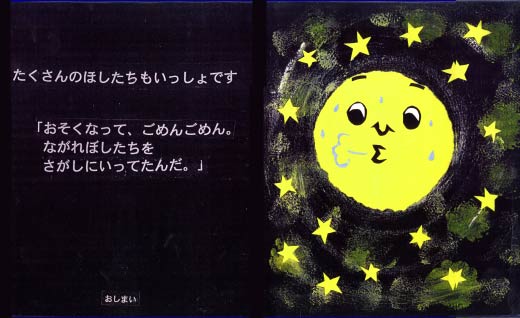 たくさんのほしたちもいっしょです
「おそくなって、ごめんごめん。
ながれぼしたちを
さがしにいってたんだ。」
おしまい